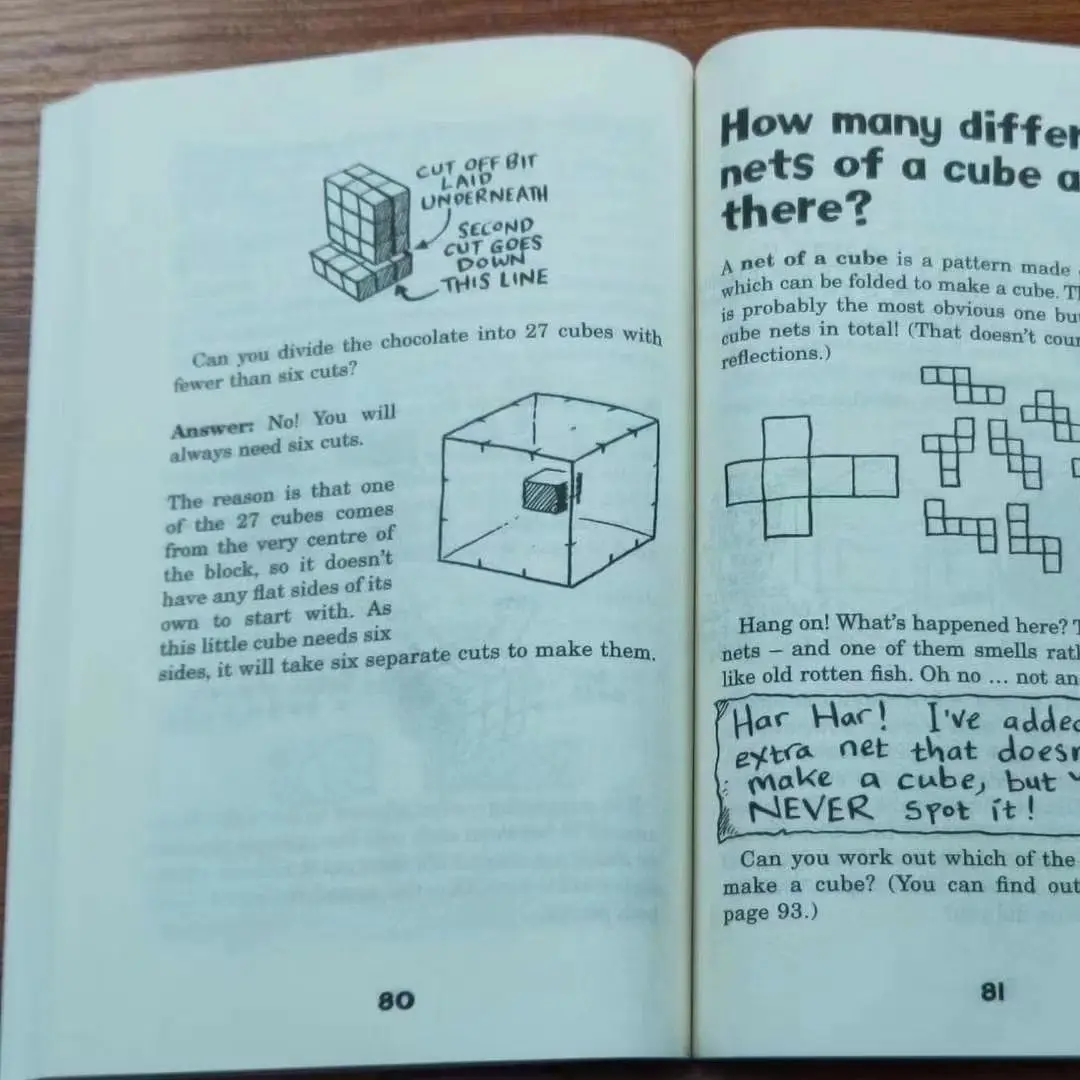 CUT OFF BIT
LAID
UNDERNEATH
SECOND
CUT GOES
DOWN
THIS LINE
Can you divide the chocolate into 27 cubes with
fewer than six cuts?
Answer: No! You will
always need six cuts.
The reason is that one
of the 27 cubes comes
from the very centre of
the block, so it doesn't
have any flat sides of its
own to start with. As
this little cube needs six
sides, it will take six separate cuts to make them.
80
How many
nets of a cube
there?
A net of a cube is a pattern made
which can be folded to make a cube.
is probably the most obvious one
cube nets in total! (That doesn't
reflections.)
Hang on! What's happened here?
nets – and one of them smells
like old rotten fish. Oh no ... not
Har Har! I've
extra net that
make a cube, but
NEVER spot it!
Can you work out which of the
make a cube? (You can find out
page 93.)
81